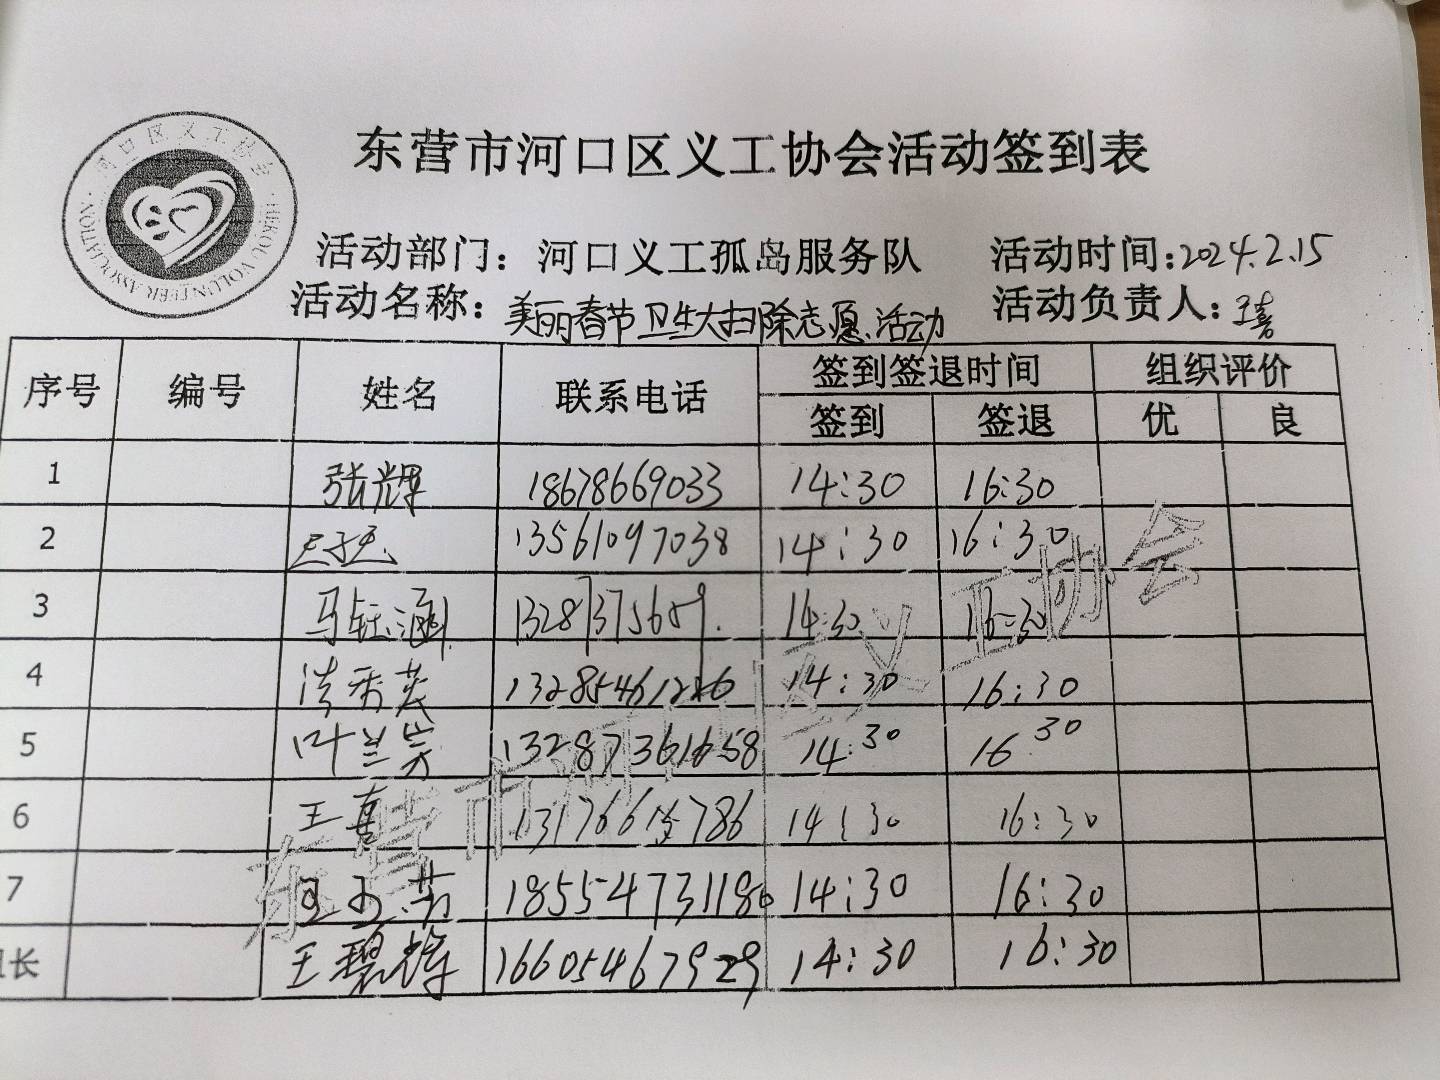 河口区义工协会
HEKOU VOLUNTEER ASSOCIATION
东营市河口区义工协会活动签到表
活动部门：河口义工孤岛服务队 活动时间：2024.2.15
活动名称：美丽春节卫生大扫除志愿活动 活动负责人：王喜
序号 编号 姓名 联系电话 签到签退时间 组织评价
签到 签退 优 良
1 张辉 18678669033 14:30 16:30
2 13561097038 14:30 16:30
3 马钰涵 13287375659. 14:30 16:30
4 秀英 13285461226 14:30 16:30
5 叶兰芳 13287361658 14:30 16:30
6 王喜 13176615786 14:30 16:30
7 18554731180 14:30 16:30
组长 王碧辉 16605467929 14:30 16:30
东营市河口区义工协会